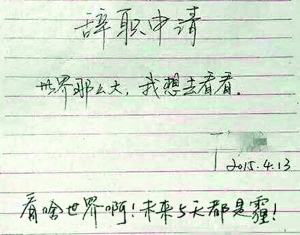 辞职申请
世界那么大，我想去看看。
2015.4.13
看啥世界啊！未来5天都是霾！